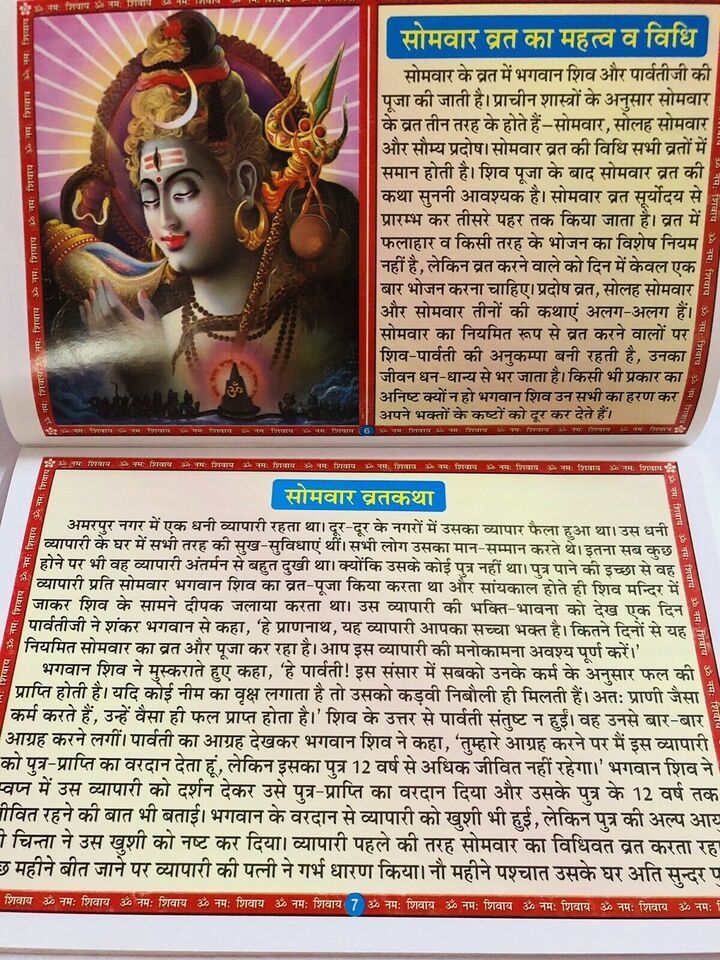 सोमवार व्रत का महत्व व विधि
सोमवार के व्रत में भगवान शिव और पार्वतीजी की
पूजा की जाती है। प्राचीन शास्त्रों के अनुसार सोमवार
के व्रत तीन तरह के होते हैं–सोमवार, सोलह सोमवार
और सौम्य प्रदोष। सोमवार व्रत की विधि सभी व्रतों में
समान होती है। शिव पूजा के बाद सोमवार व्रत की
कथा सुननी आवश्यक है। सोमवार व्रत सूर्योदय से
प्रारम्भ कर तीसरे पहर तक किया जाता है। व्रत में
फलाहार व किसी तरह के भोजन का विशेष नियम
नहीं है, लेकिन व्रत करने वाले को दिन में केवल एक
बार भोजन करना चाहिए। प्रदोष व्रत, सोलह सोमवार
और सोमवार तीनों की कथाएं अलग-अलग हैं।
सोमवार का नियमित रूप से व्रत करने वालों पर
शिव-पार्वती की अनुकम्पा बनी रहती है, उनका
जीवन धन-धान्य से भर जाता है। किसी भी प्रकार का
अनिष्ट क्यों न हो भगवान शिव उन सभी का हरण कर
अपने भक्तों के कष्टों को दूर कर देते हैं।
6
ॐ नमः शिवाय ॐ नमः शिवाय ॐ नमः शिवाय ॐ नमः शिवाय
सोमवार व्रतकथा
अमरपुर नगर में एक धनी व्यापारी रहता था। दूर-दूर के नगरों में उसका व्यापार फैला हुआ था। उस धनी
व्यापारी के घर में सभी तरह की सुख-सुविधाएं थीं। सभी लोग उसका मान-सम्मान करते थे। इतना सब कुछ
होने पर भी वह व्यापारी अंतर्मन से बहुत दुखी था। क्योंकि उसके कोई पुत्र नहीं था। पुत्र पाने की इच्छा से वह
व्यापारी प्रति सोमवार भगवान शिव का व्रत-पूजा किया करता था और सांयकाल होते ही शिव मन्दिर में
जाकर शिव के सामने दीपक जलाया करता था। उस व्यापारी की भक्ति-भावना को देख एक दिन
पार्वतीजी ने शंकर भगवान से कहा, 'हे प्राणनाथ, यह व्यापारी आपका सच्चा भक्त है। कितने दिनों से यह
नियमित सोमवार का व्रत और पूजा कर रहा है। आप इस व्यापारी की मनोकामना अवश्य पूर्ण करें।'
भगवान शिव ने मुस्कराते हुए कहा, 'हे पार्वती! इस संसार में सबको उनके कर्म के अनुसार फल की
प्राप्ति होती है। यदि कोई नीम का वृक्ष लगाता है तो उसको कड़वी निबौली ही मिलती हैं। अतः प्राणी जैसा
कर्म करते हैं, उन्हें वैसा ही फल प्राप्त होता है।' शिव के उत्तर से पार्वती संतुष्ट न हुईं। वह उनसे बार-बार
आग्रह करने लगीं। पार्वती का आग्रह देखकर भगवान शिव ने कहा, 'तुम्हारे आग्रह करने पर मैं इस व्यापारी
को पुत्र-प्राप्ति का वरदान देता हूं, लेकिन इसका पुत्र 12 वर्ष से अधिक जीवित नहीं रहेगा।' भगवान शिव ने
स्वप्न में उस व्यापारी को दर्शन देकर उसे पुत्र-प्राप्ति का वरदान दिया और उसके पुत्र के 12 वर्ष तक
जीवित रहने की बात भी बताई। भगवान के वरदान से व्यापारी को खुशी भी हुई, लेकिन पुत्र की अल्प आयु
चिन्ता ने उस खुशी को नष्ट कर दिया। व्यापारी पहले की तरह सोमवार का विधिवत व्रत करता रहा
महीने बीत जाने पर व्यापारी की पत्नी ने गर्भ धारण किया। नौ महीने पश्चात उसके घर अति सुन्दर
शिवाय ॐ नमः शिवाय ॐ नमः शिवाय ॐ नमः शिवाय 7 ॐ नमः शिवाय ॐ नमः शिवाय ॐ नमः शिवाय